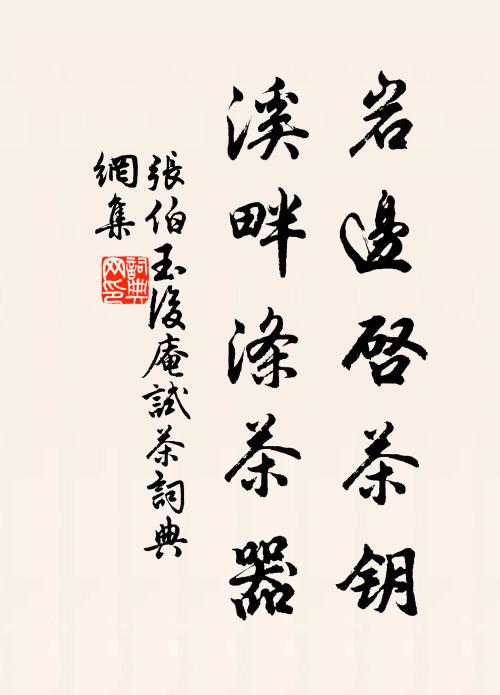 岩邊啓茶钥
溪畔涤茶器
張伯玉後庵試茶詞典
網集
詞典
网印